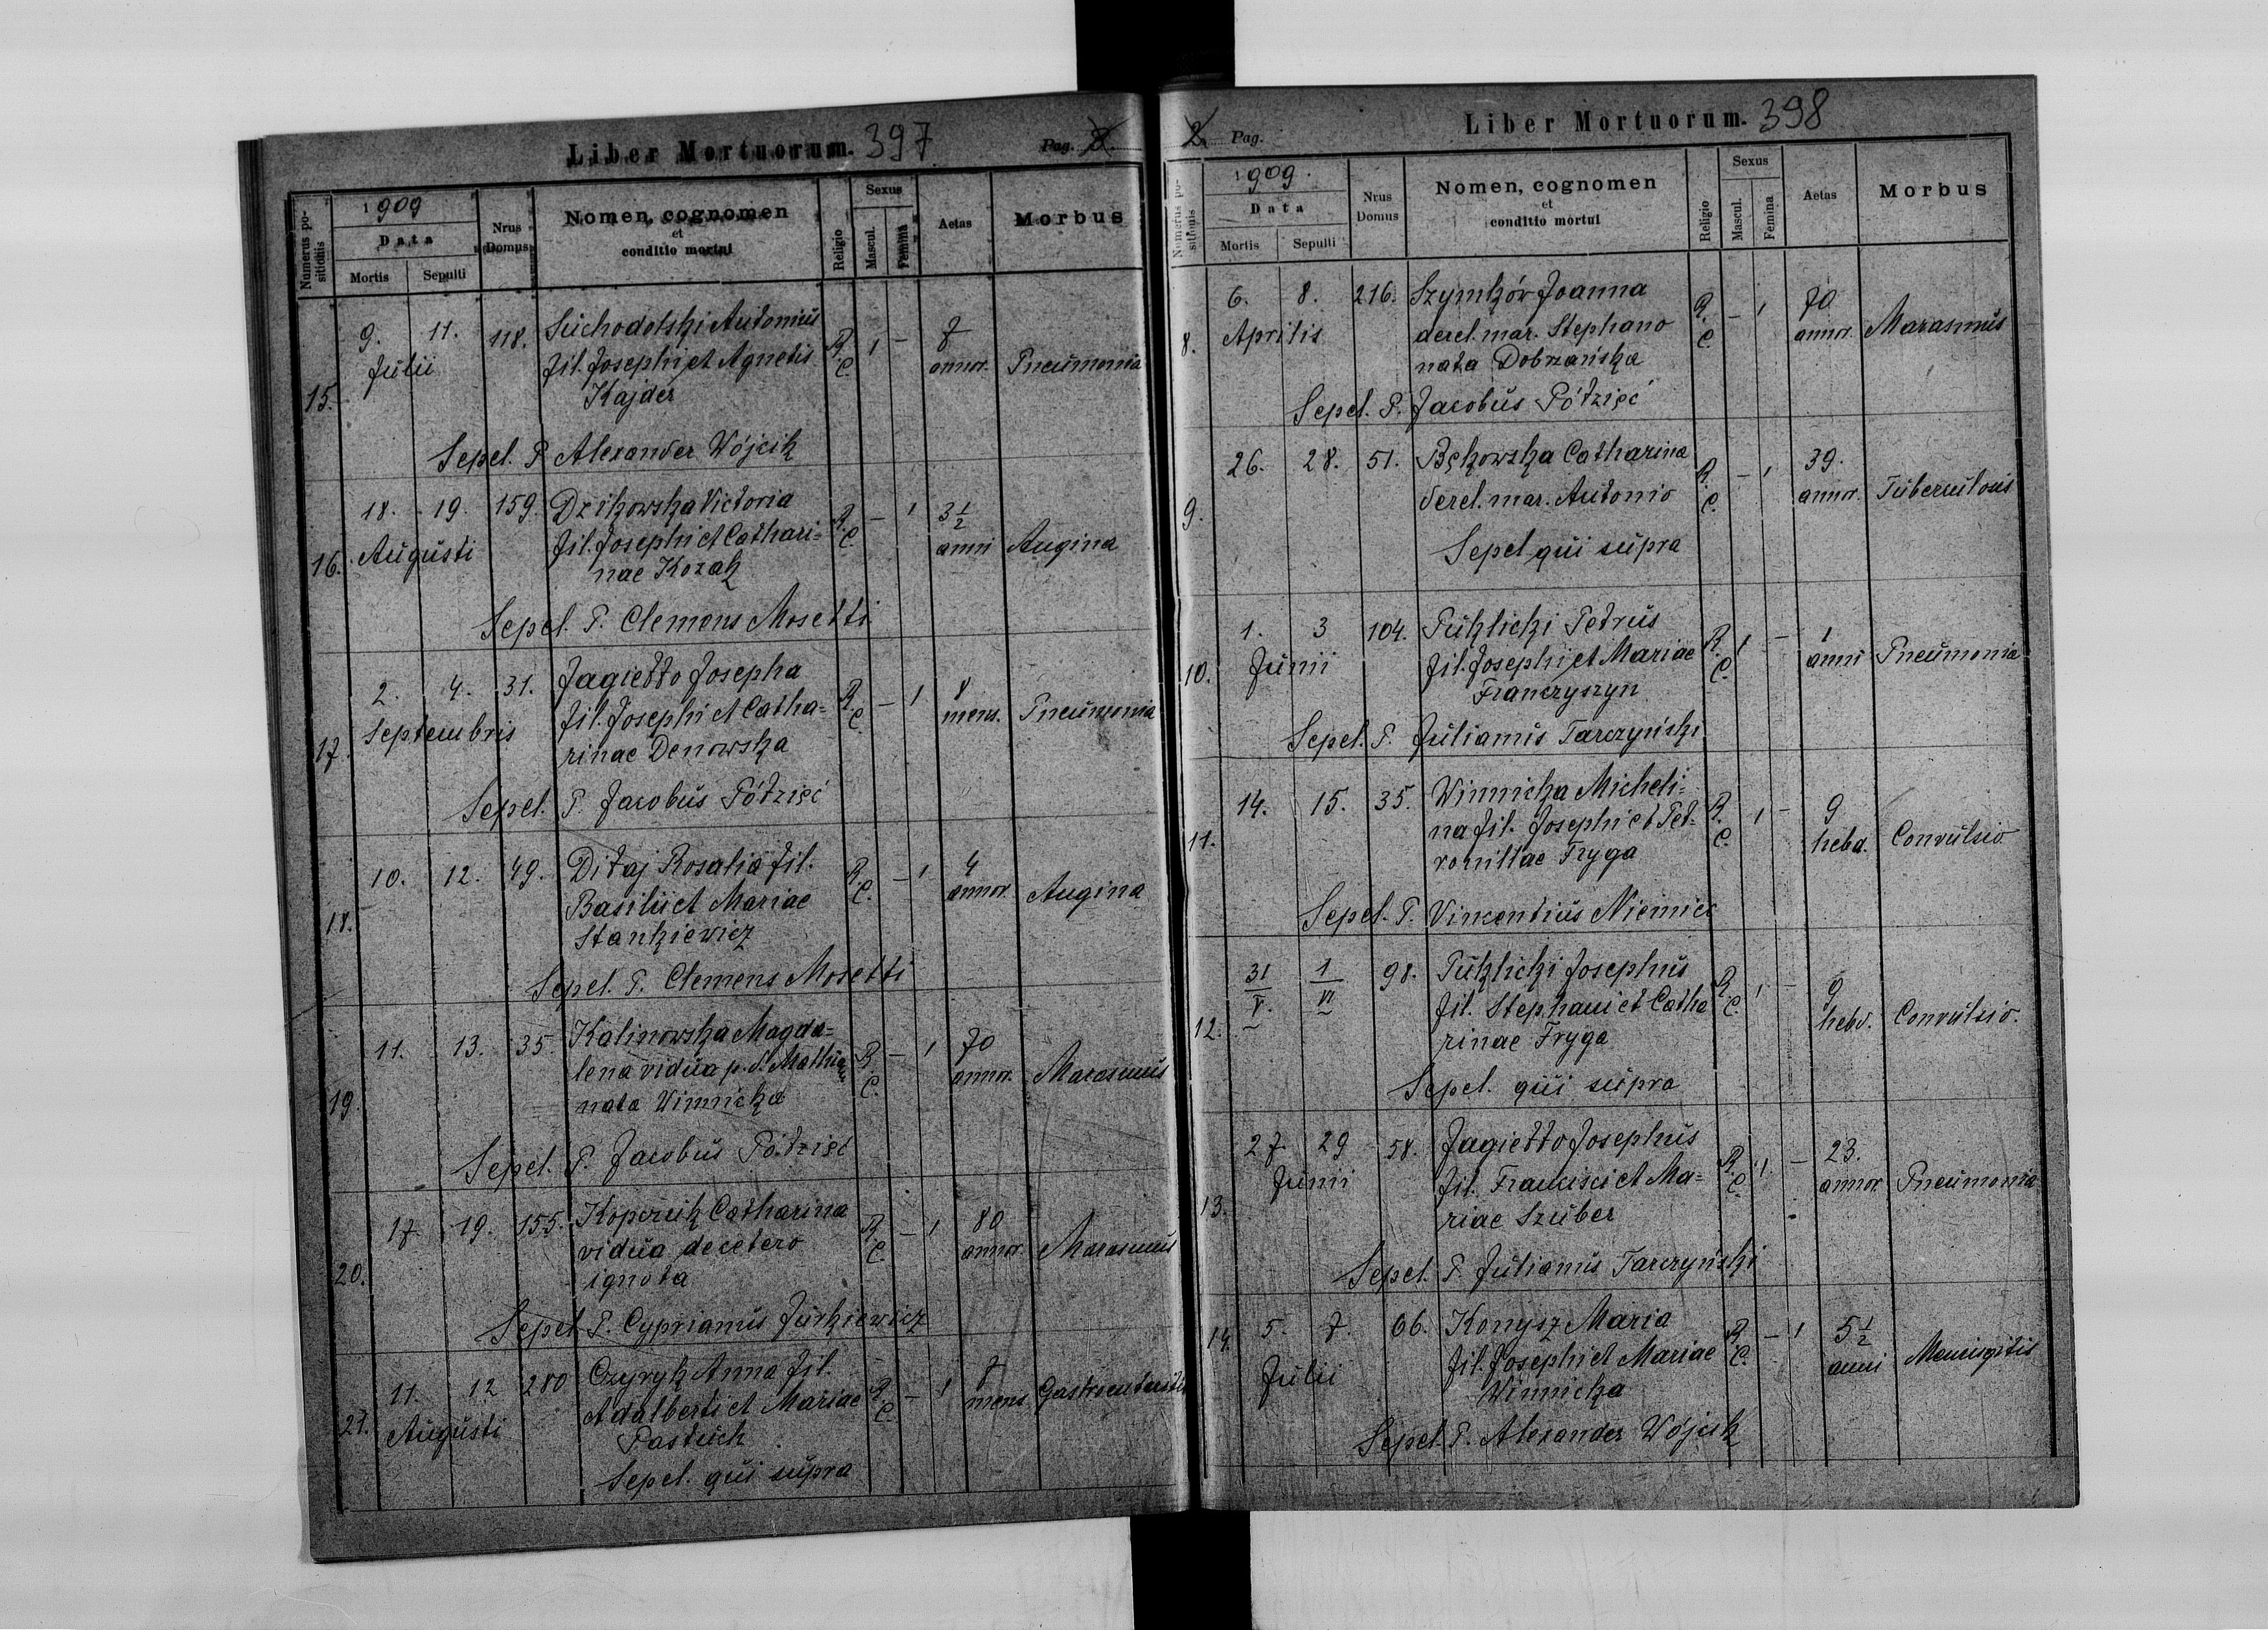 Liber Mortuorum. 397
Pag. 3.
Numerus positionis
1909
Data
Mortis
Sepulti
Nrus Domus
Nomen, cognomen
et
conditio mortui
Religio
Sexus
Mascul.
Femina
Aetas
Morbus
15. 9. 11. 118. Suchodolski Antonius R. 1 – 7
Julii fil. Josephi et Agnetis C. annor. Pneumonia
Kajder
Sepel. P. Alexander Wójcik
16. 18. 19. 159. Dzikowska Victoria R. – 1 3 1/2
Augusti fil. Josephi et Cathari- C. anni Angina
nae Kozak
Sepel. P. Clemens Mosetti
17. 2. 4. 31. Jagiełło Josepha R. – 1 8
Septembris fil. Josephi et Catha- C. mens. Pneumonia
rinae Denowska
Sepel. P. Jacobus Półzięć
18. 10. 12. 49. Diłaj Rosalia fil. R. – 1 4
Basilii et Mariae C. annor. Angina
Stankiewicz
Sepel. P. Clemens Mosetti
19. 11. 13. 35. Kalinowska Magda- R. – 1 70
lena vidua p. d. Mathiam C. annor. Marasmus
nata Winnicka
Sepel. P. Jacobus Półzięć
20. 17. 19. 155. Kopczuk Catharina R. – 1 80
vidua de cetero C. annor. Marasmus
ignota
Sepel. P. Cyprianus Jurkiewicz
21. 11. 12 280 Czyryk Anna fil. R. – 1 7
Augusti Adalberti et Mariae C. mens
Pastuch
Sepel. qui supra
2. Pag.
Liber Mortuorum. 398
Numerus positionis
1909.
Data
Mortis
Sepulti
Nrus Domus
Nomen, cognomen
et
conditio mortui
Religio
Sexus
Mascul.
Femina
Aetas
Morbus
8. 6. 8. 216. Szymków Joanna R. – 1 70
Aprilis derel. mar. Stephano C. annor. Marasmus
nata Dobrzańska
Sepel. P. Jacobus Półzięć
9. 26. 28. 51. Bękowska Catharina R. – 1 39.
derel. mar. Antonio C. annor. Tuberculosis
Sepel qui supra
10. 1. 3 104. Puklicki Petrus R. 1 – 1
Junii fil. Josephi et Mariae C. anni Pneumonia
Franczyszyn
Sepel. P. Julianus Tarczyński
11. 14. 15. 35. Winnicka Micheli- R. 1 – 9
na fil. Josephi et Pet- C. hebd. Convulsio
ronillae Fryga
Sepel. P. Vincentius Niemiec
12. 31/V. 1/VI 98. Puklicki Josephus R. 1 – 9
fil. Stephani et Catha C. hebd. Convulsio.
rinae Fryga
Sepel. qui supra
13. 27. 29 58. Jagiełło Josephus R. 1 – 23.
Junii fil. Francisci et Ma- C. annor. Pneumonia
riae Szuber
Sepel. P. Julianus Tarczyński
14. 5. 7. 66. Konysz Maria R. – 1 5 1/2
Julii fil. Josephi et Mariae C. anni Meningitis
Winnicka
Sepel. P. Alexander Wójcik